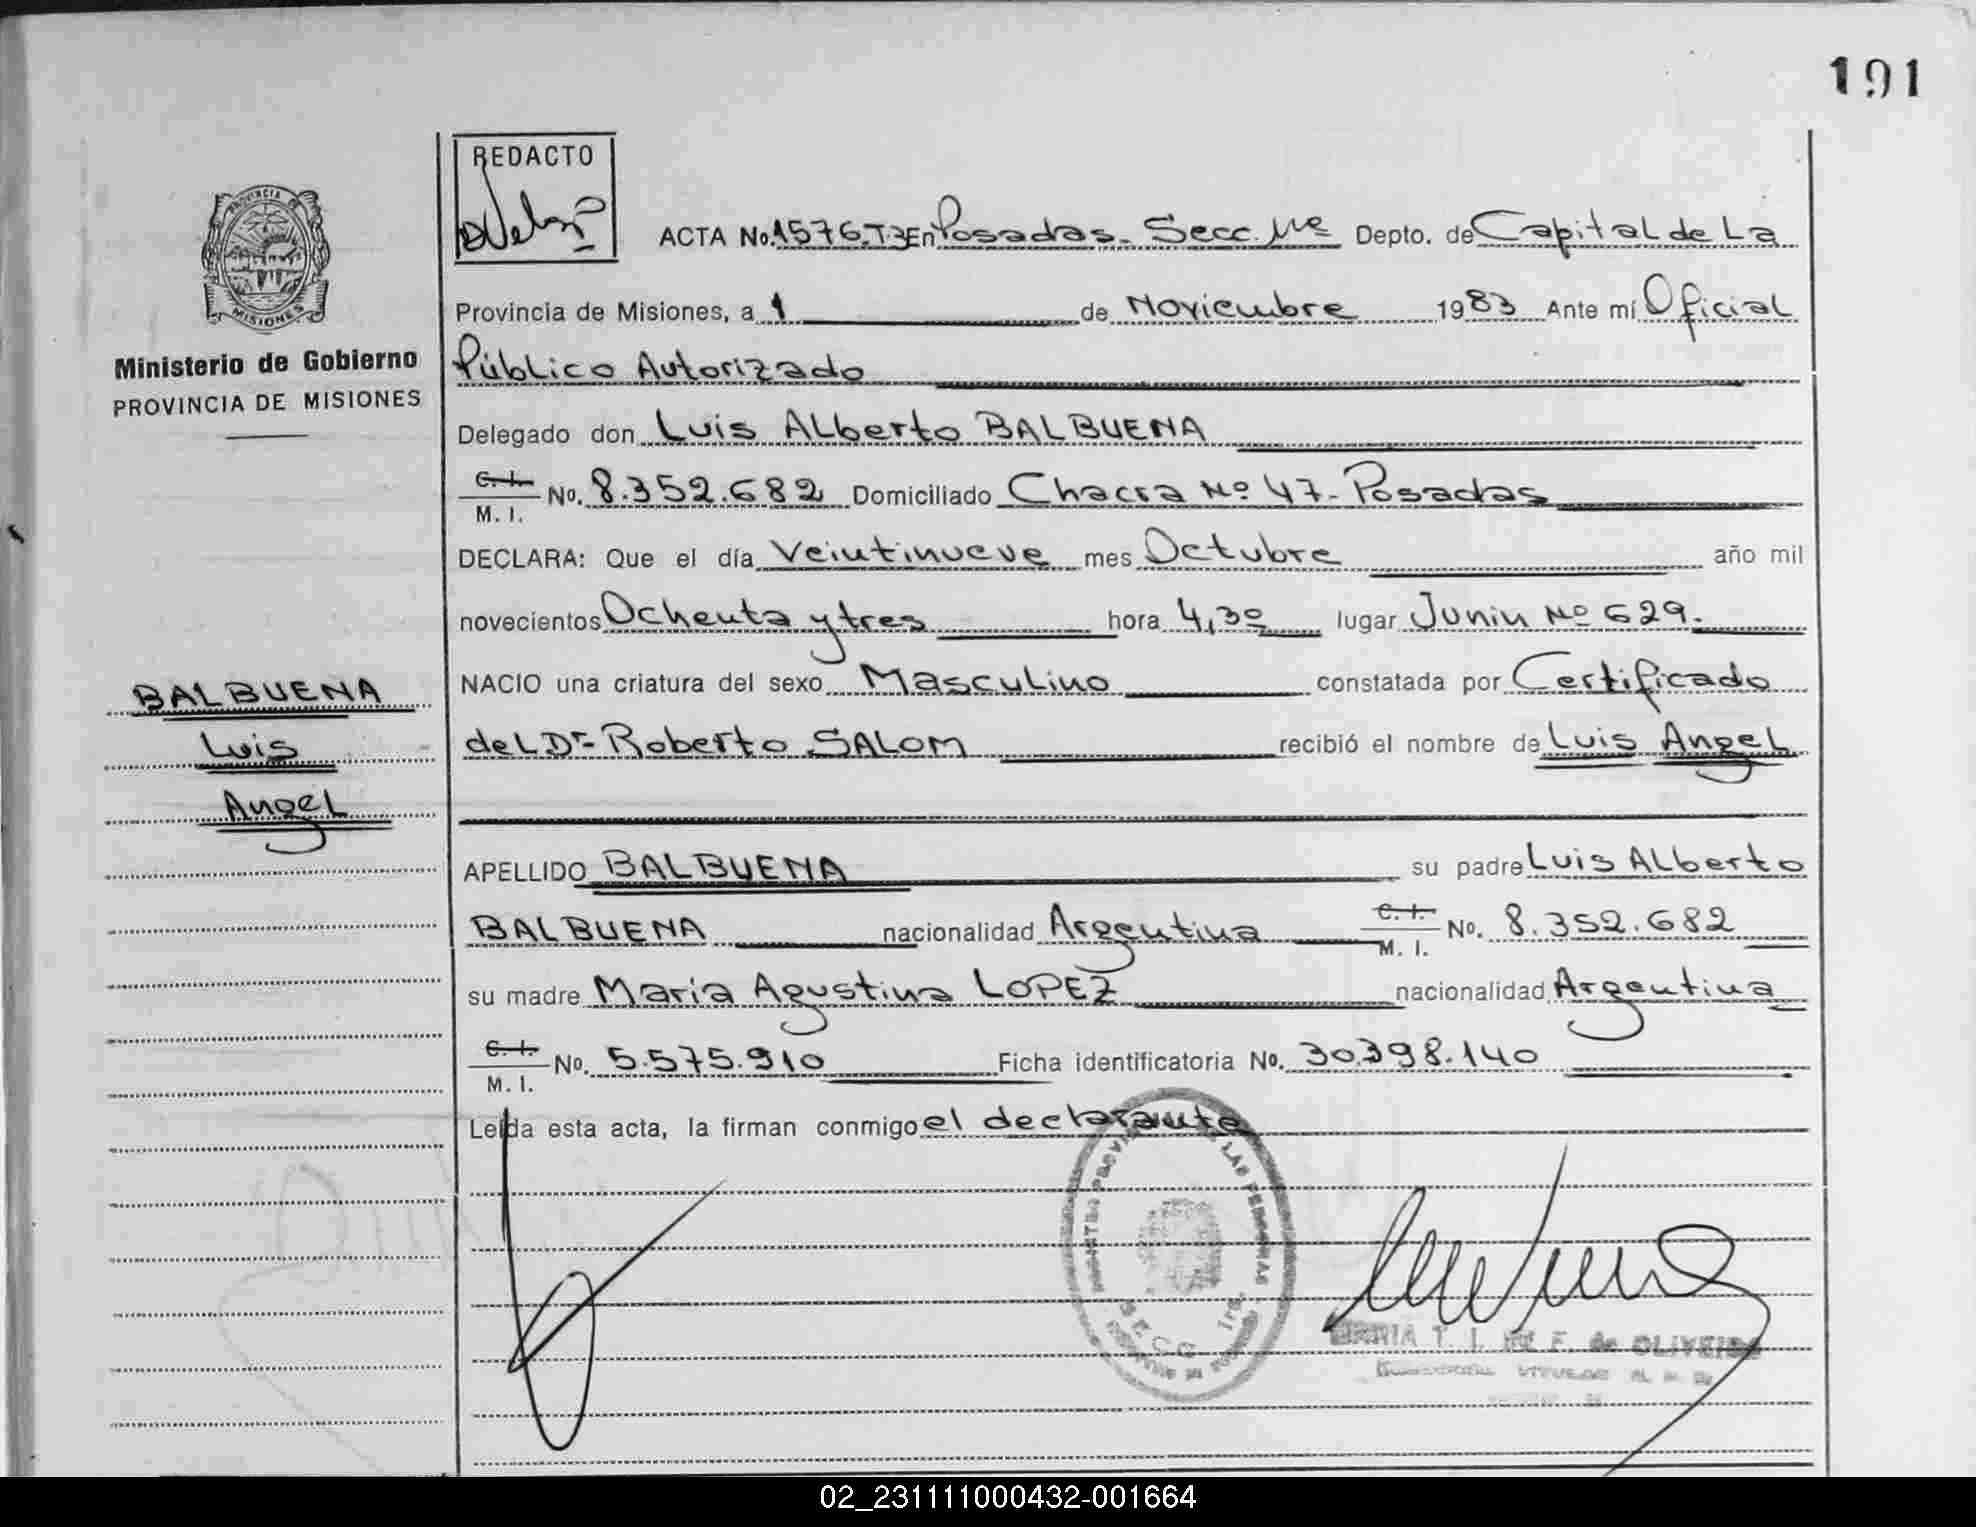 191
REDACTO
ACTA No. 1576.T3 En Posadas. Secc. Depto. de Capital de La
Provincia de Misiones, a 1 de Noviembre 1983 Ante mí Oficial
Público Autorizado
Delegado don Luis Alberto BALBUENA
C. I. M. I. No. 8.352.682 Domiciliado Chacra Nº 47- Posadas
DECLARA: Que el día Veintinueve mes Octubre año mil
novecientos Ochenta y tres hora 4,30 lugar Junin Nº 629.
NACIO una criatura del sexo Masculino constatada por Certificado
del Dr- Roberto SALOM recibió el nombre de Luis Angel
APELLIDO BALBUENA su padre Luis Alberto
BALBUENA nacionalidad Argentina C. I. M. I. No. 8.352.682
su madre Maria Agustina LOPEZ nacionalidad Argentina
C. I. M. I. No. 5.575.910 Ficha identificatoria No. 30.398.140
Leída esta acta, la firman conmigo el declarante
PROVINCIA DE
MISIONES
Ministerio de Gobierno
PROVINCIA DE MISIONES
BALBUENA
Luis
Angel
LAS PERSONAS
SECC 1ra.
T. I. F. de OLIVEIRA
02_231111000432-001664